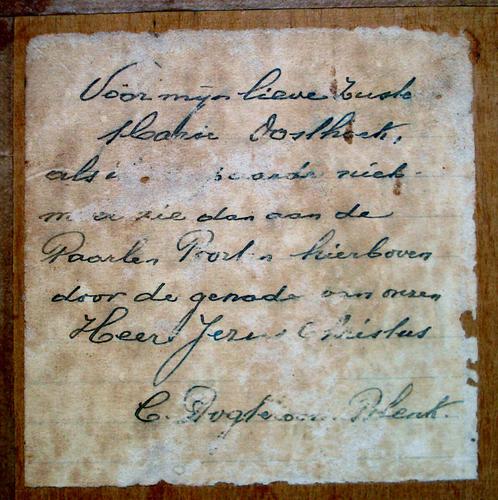 Voor mijn lieve Zuste
Marie Oosthoek,
als niet
meer zie dan aan de
Paarlen Poorten hierboven
door de genade van onzen
Heer Jezus Christus
C.